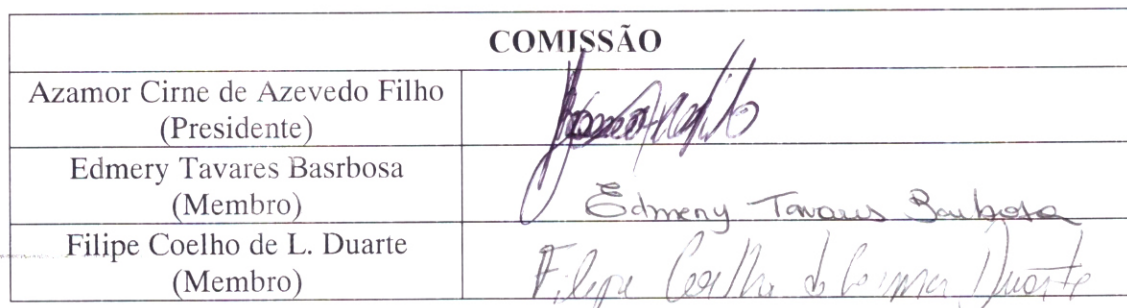 COMISSÃO
Azamor Cirne de Azevedo Filho
(Presidente)
Edmery Tavares Basrbosa
(Membro)
Edmery Tavares Barbosa
Filipe Coelho de L. Duarte
(Membro)
Filipe Coelho de Duarte